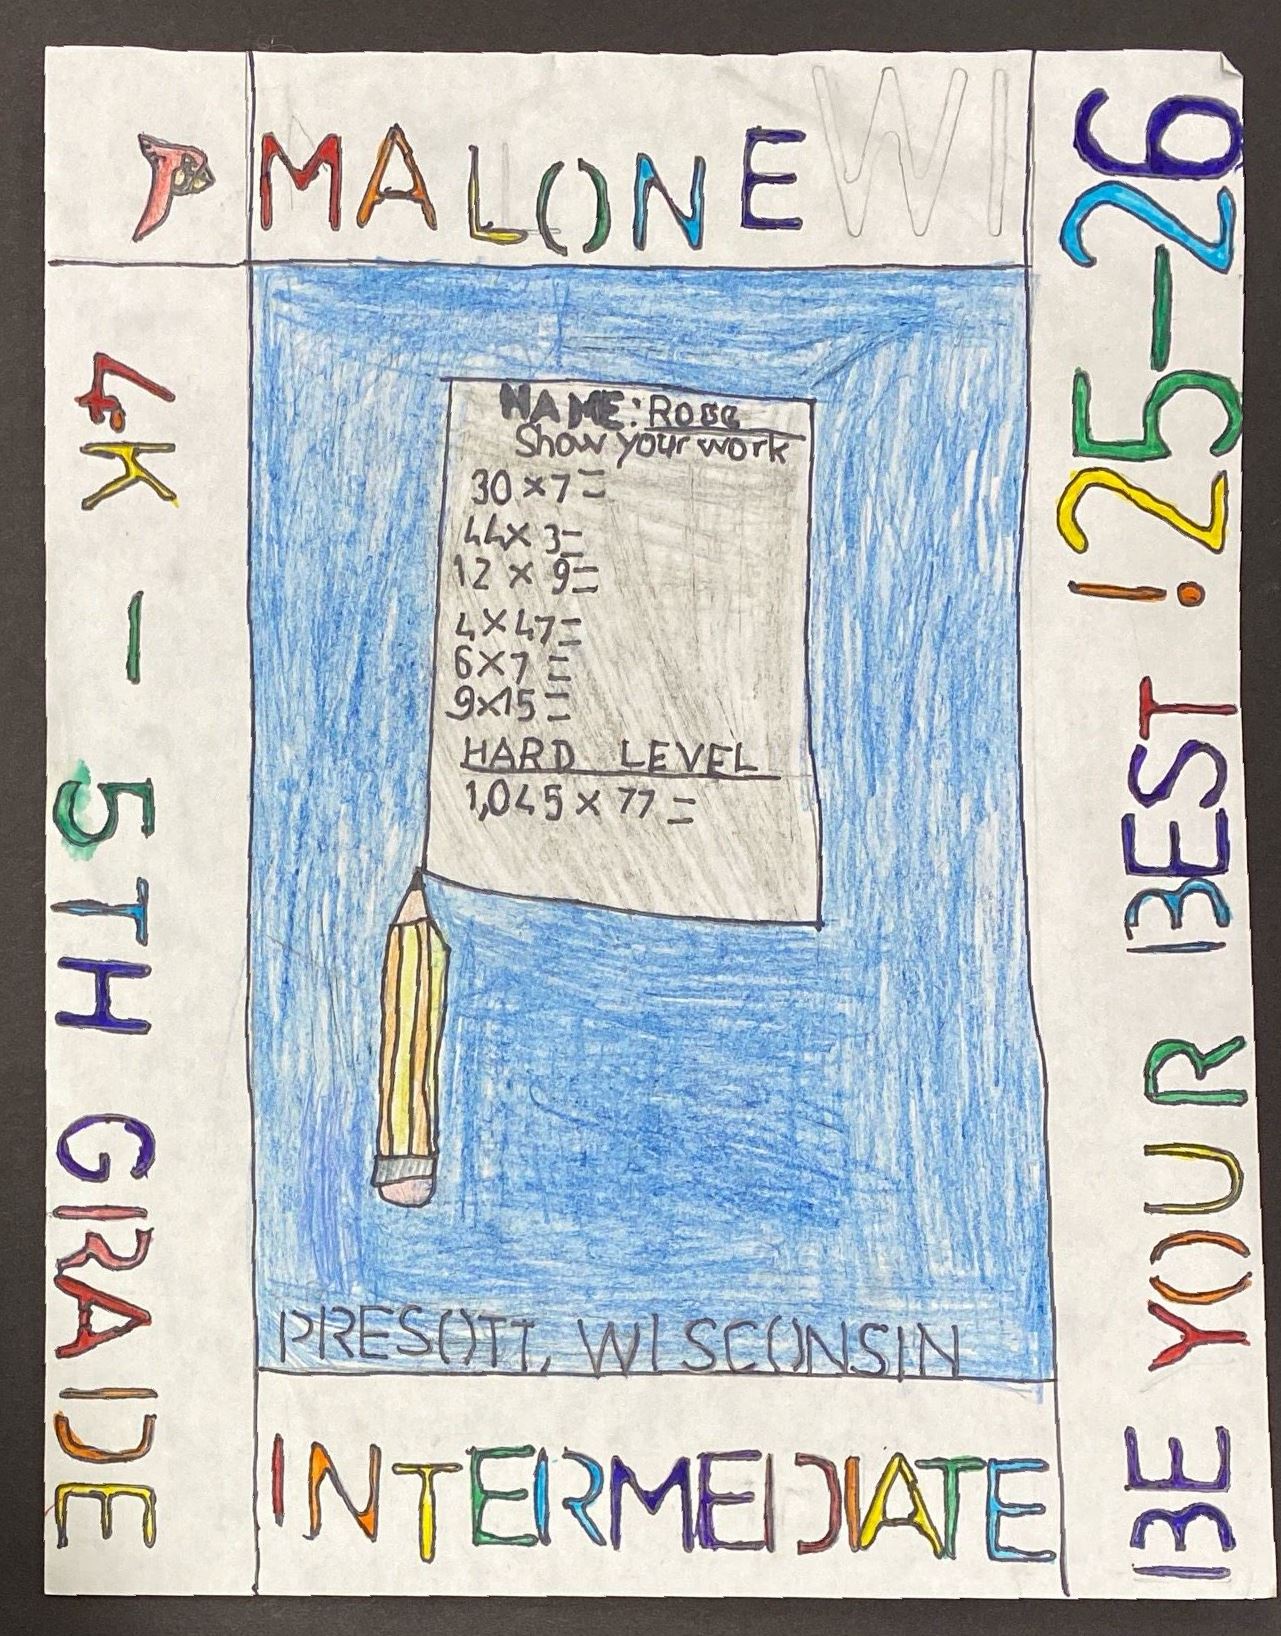 MALONE WI
4K - 5TH GRADE
NAME: ROSE
Show your work
30 × 7 =
44 × 3 =
12 × 9 =
4 × 47 =
6 × 7 =
9 × 15 =
HARD LEVEL
1,045 × 77 =
PRESOTT, WISCONSIN
INTERMEDIATE
BE YOUR BEST! 25-26